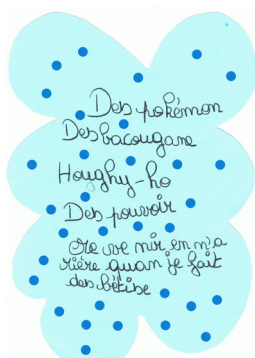 Des pokémon
Des bacougane
Houghy-ho
Des pouvoir
re ve nir en n'a
rière quan je fait
des bétise